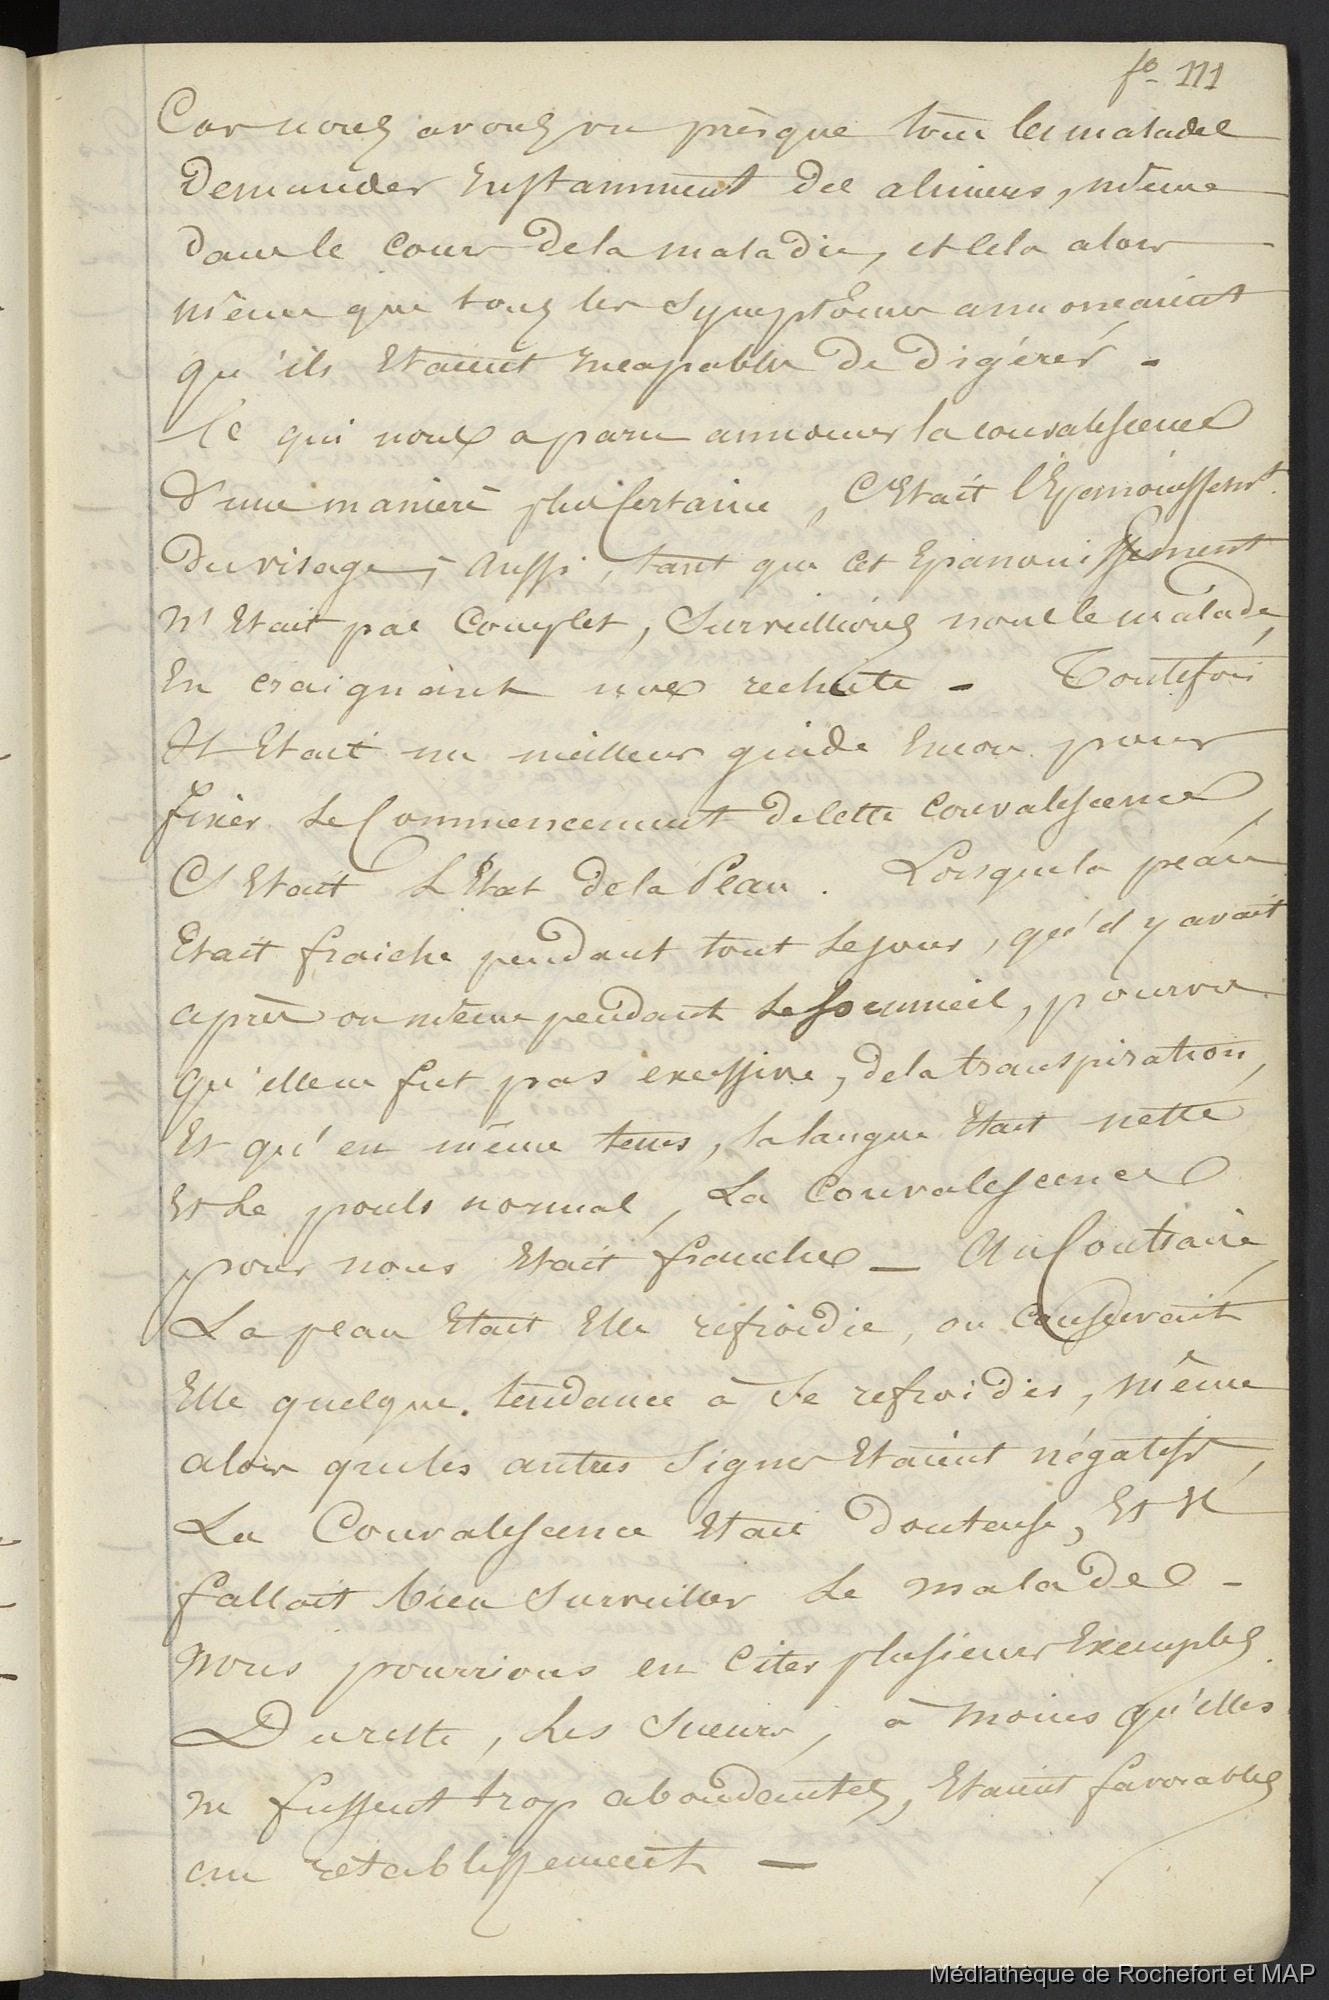 fo 111
Car nous avons vu presque tous les malades
Demander Instamment des alimens, même
dans le Cours de la maladie, et Cela alors
même que tous les Symptômes annoncaient
qu'ils Etaient Incapables De Digérer -
Ce qui nous a paru annoncer la convalescence
D'une manière plus Certaine, C'Etait l'Epanouissemt.
Du visage; Aussi, tant que Cet Epanouissement
N'Etait pas Complet, Surveillions nous le malade,
En craignant une rechute - Toutefois
Il Etait un meilleur guide Encore pour
fixer Le Commencement de Cette Convalescence,
C'Etait L'Etat de la Peau. Lorsque la peau
Etait fraiche pendant tout Le jour, qu'il y avait
après ou même pendant Le Sommeil, pourvu
qu'elle ne fut pas excessive, de la transpiration,
Et qu'en même tems, la langue Etait nette
Et Le pouls normal, La Convalescence
pour nous Etait franche - Au Contraire,
La peau Etait Elle refroidie, ou Conservait
Elle quelque tendance à Se refroidir, même
alors que les autres Signes Etaient négatifs,
La Convalescence Etait Douteuse, Et Il
fallait bien Surveiller Le malade -
Nous pourrions en Citer plusieurs Exemples.
Du reste, Les Sueurs, à moins qu'elles
ne fussent trop abondantes, Etaient favorables
au rétablissement -
Médiathèque de Rochefort et MAP